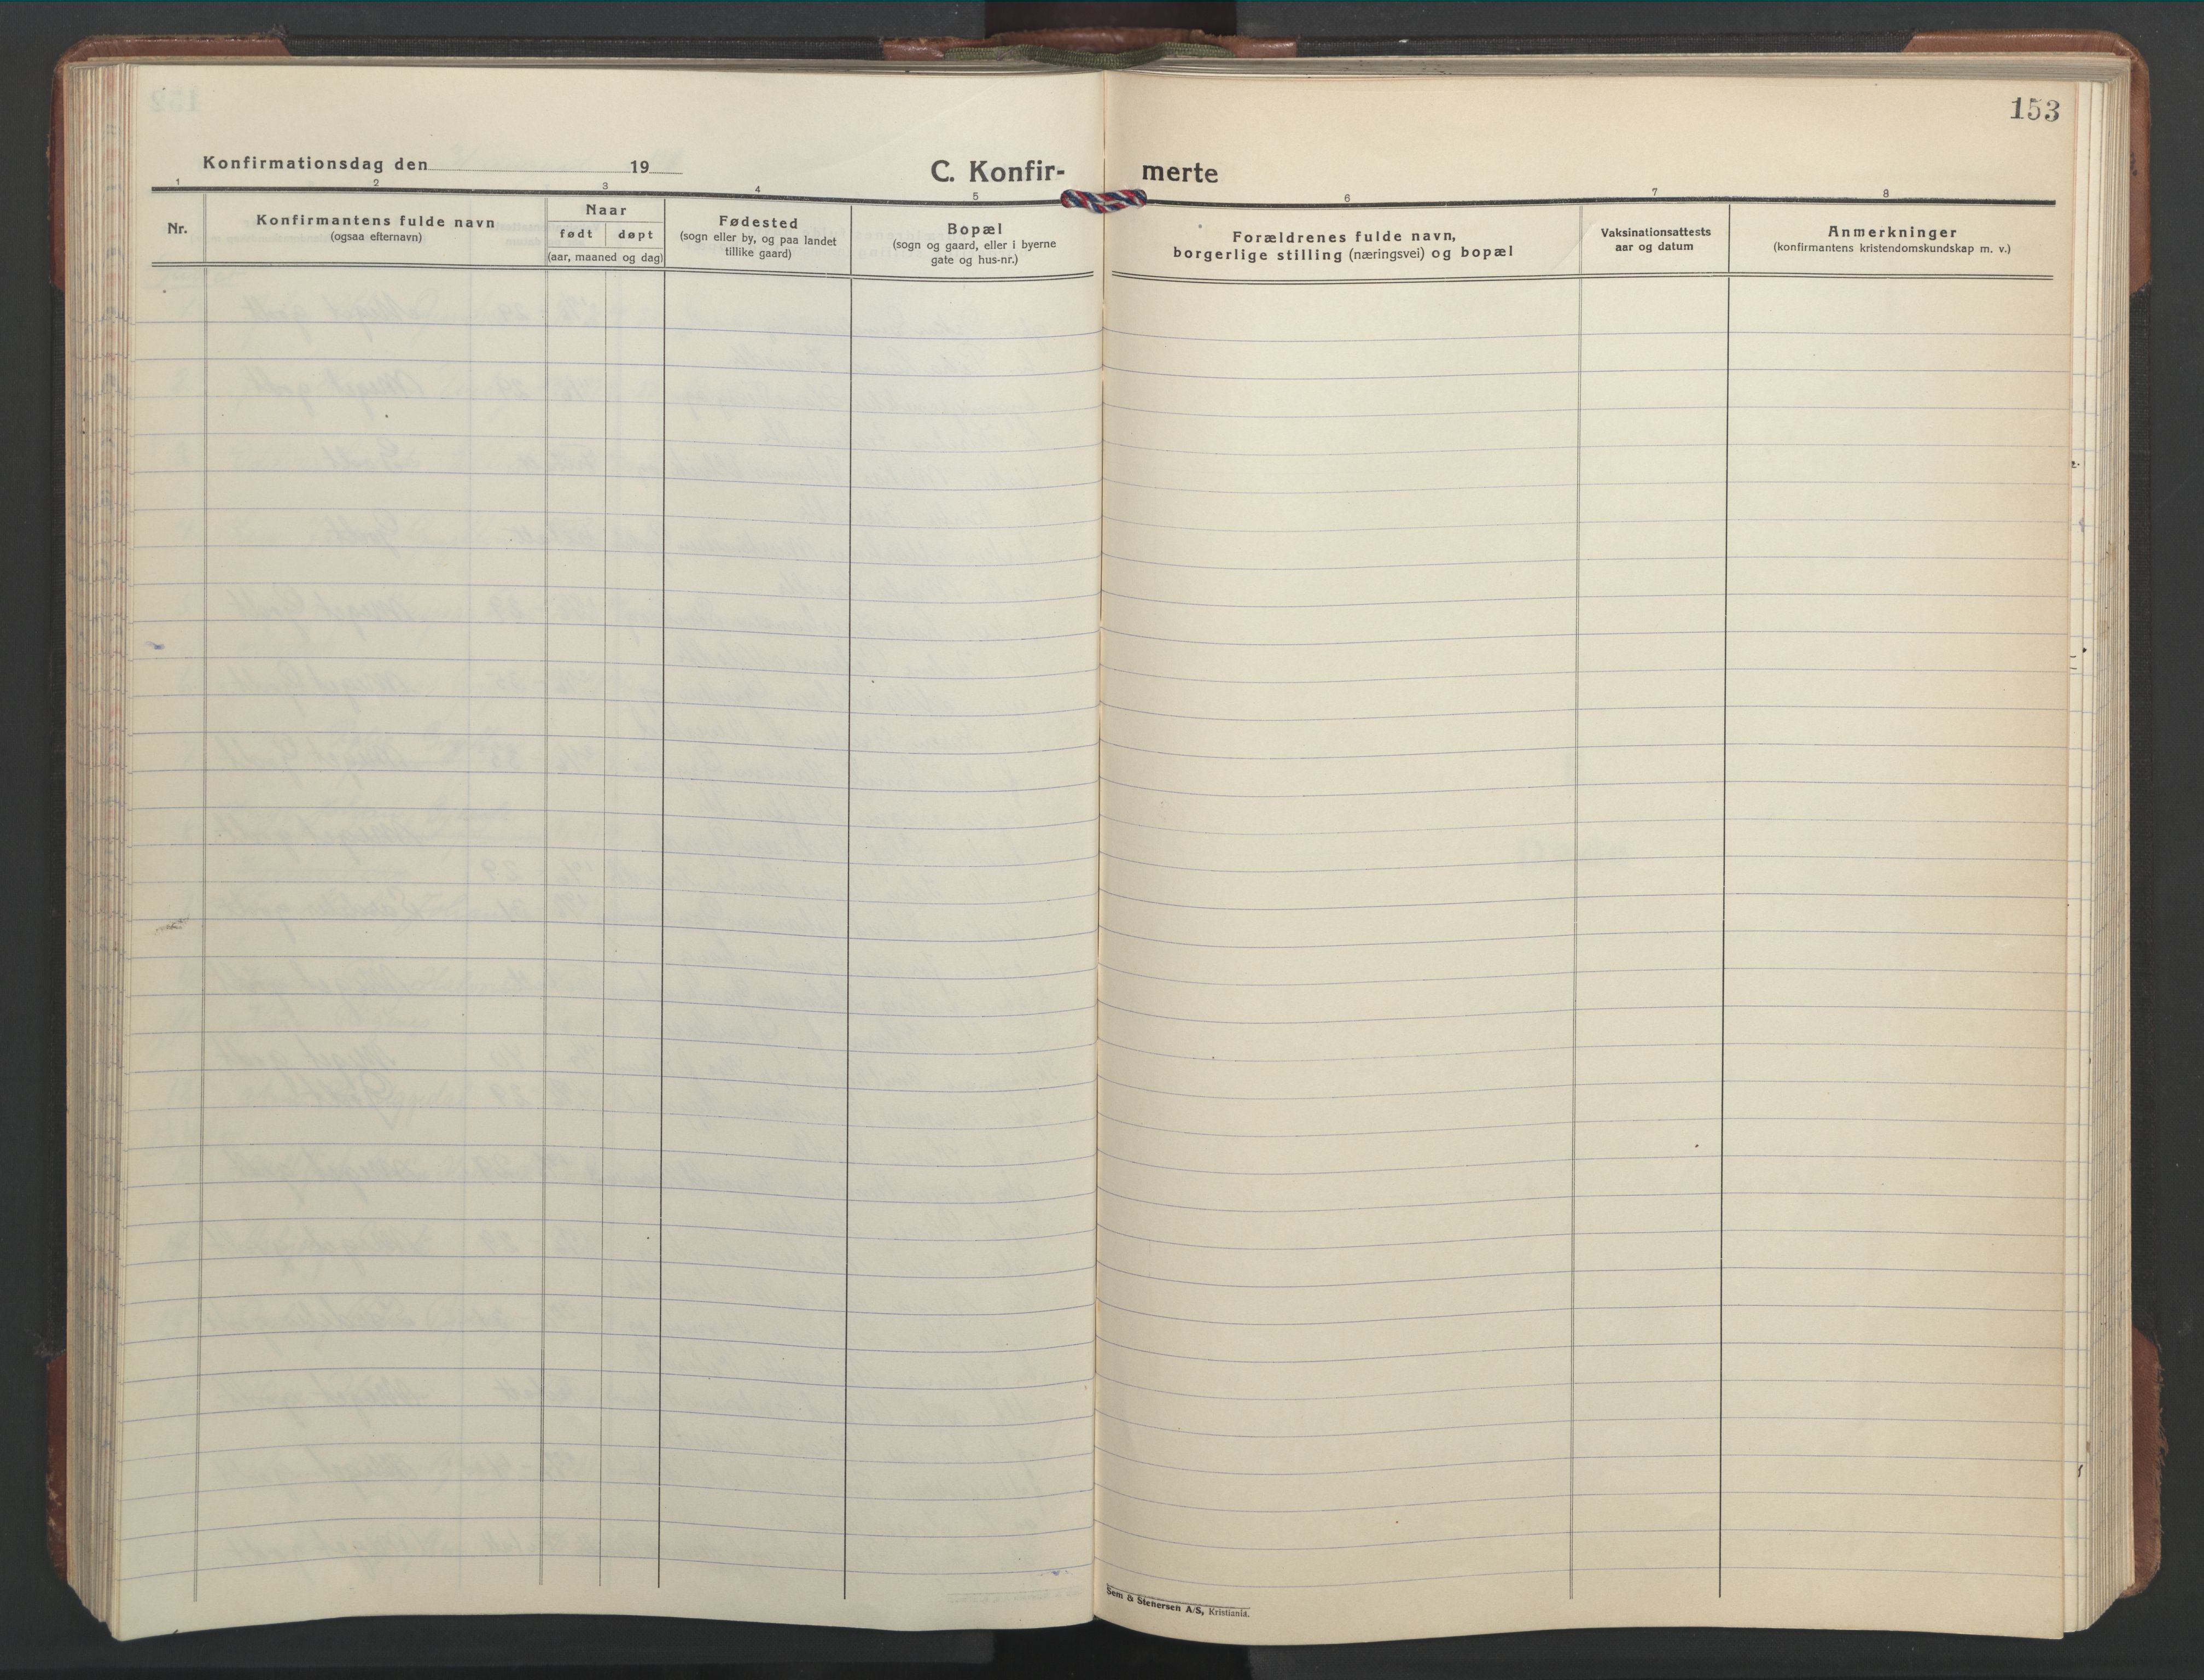 153
Konfirmationsdag den 19
C. Konfir-merte
1 2 3 4 5 6 7 8
Nr.
Konfirmantens fulde navn
(ogsaa efternavn)
Naar
født døpt
(aar, maaned og dag)
Fødested
(sogn eller by, og paa landet
tillike gaard)
Bopæl
(sogn og gaard, eller i byerne
gate og hus-nr.)
Forældrenes fulde navn,
borgerlige stilling (næringsvei) og bopæl
Vaksinationsattests
aar og datum
Anmerkninger
(konfirmantens kristendomskundskap m. v.)
Sem & Stenersen A/S, Kristiania.